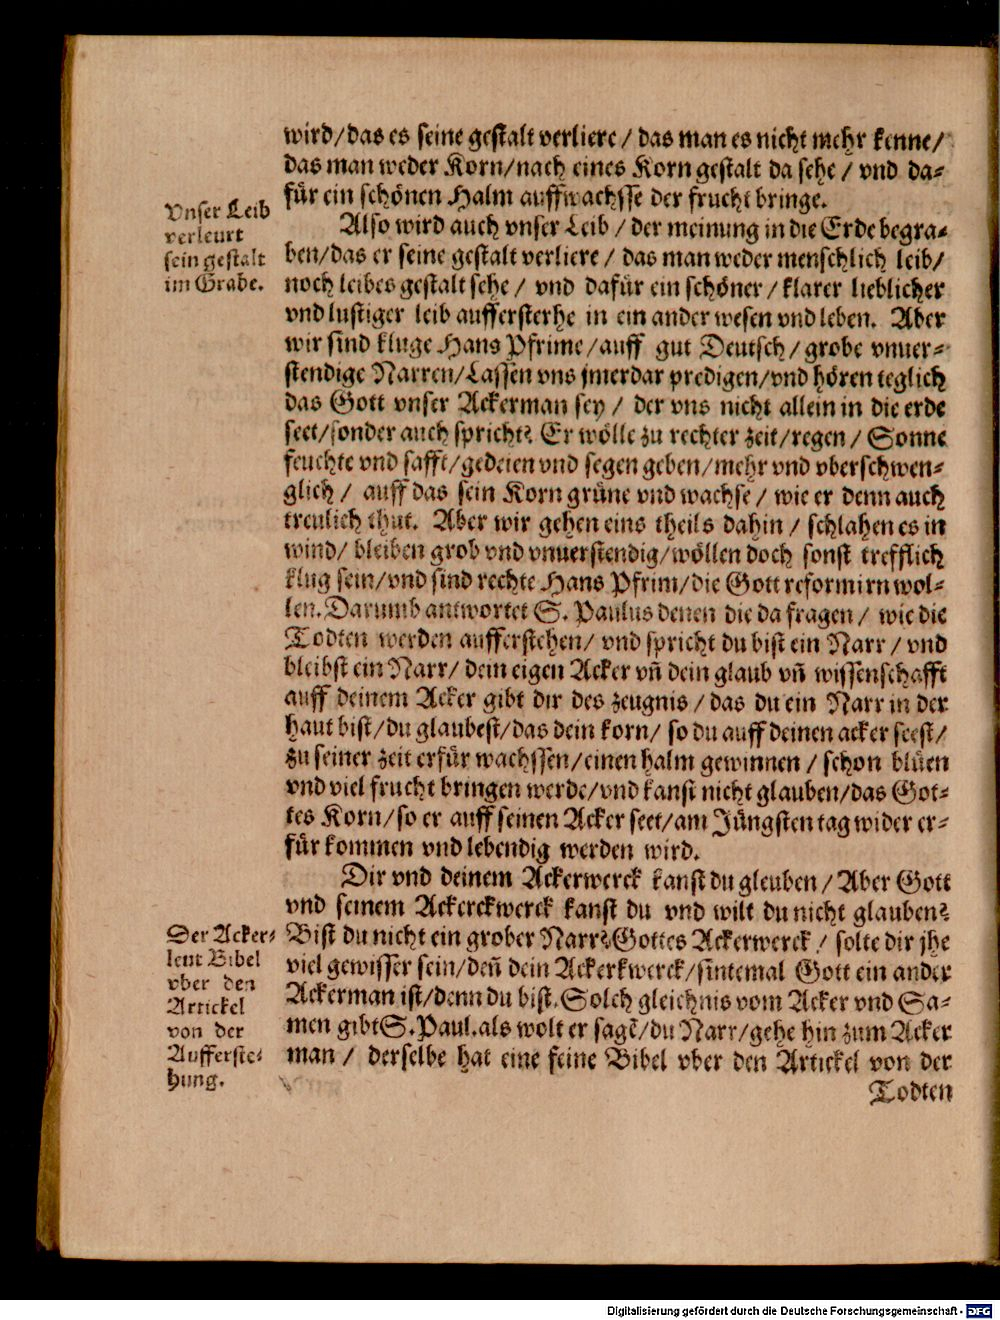 wird/das es seine gestalt verliere / das man es nicht mehr kenne/
das man weder Korn/nach eines Korn gestalt da sehe / vnd da-
für ein schönen Halm auffwachsse der frucht bringe.
Vnser Leib
verleurt
sein gestalt
im Grabe.
Also wird auch vnser Leib / der meinung in die Erde begra-
ben/das er seine gestalt verliere / das man weder menschlich leib/
noch leibes gestalt sehe / vnd dafür ein schöner / klarer lieblicher
vnd lustiger leib auffersterhe in ein ander wesen vnd leben. Aber
wir sind kluge Hans Pfrime/auff gut Deutsch / grobe vnuer-
stendige Narren/Lassen vns jmerdar predigen/vnd hören teglich
das Gott vnser Ackerman sey / der vns nicht allein in die erde
seet/sonder auch spricht? Er wölle zu rechter zeit/regen / Sonne
feuchte vnd safft/gedeien vnd segen geben/mehr vnd vberschwen-
glich / auff das sein Korn grüne vnd wachse / wie er denn auch
treulich thut. Aber wir gehen eins theils dahin / schlahen es in
wind/ bleiben grob vnd vnuerstendig/wöllen doch sonst trefflich
klug sein/vnd sind rechte Hans Pfrim/die Gott reformirn wol-
len. Darumb antwortet S. Paulus denen die da fragen / wie die
Todten werden aufferstehen/ vnd spricht du bist ein Narr / vnd
bleibst ein Narr/ dein eigen Acker vñ dein glaub vñ wissenschafft
auff deinem Acker gibt dir des zeugnis / das du ein Narr in der
haut bist/du glaubest/das dein korn/ so du auff deinen acker seest/
zu seiner zeit erfür wachssen/einen halm gewinnen / schon blüen
vnd viel frucht bringen werde/vnd kanst nicht glauben/das Got-
tes Korn/so er auff seinen Acker seet/am Jüngsten tag wider er-
für kommen vnd lebendig werden wird.
Dir vnd deinem Ackerwerck kanst du gleuben / Aber Gott
vnd seinem Ackerckwerck kanst du vnd wilt du nicht glauben?
Der Acker-
leut Bibel
vber den
Artickel
von der
Aufferste-
hung.
Bist du nicht ein grober Narr? Gottes Ackerwerck / solte dir jhe
viel gewisser sein/deñ dein Ackerkwerck/sintemal Gott ein ander
Ackerman ist/denn du bist. Solch gleichnis vom Acker vnd Sa-
men gibt S. Paul. als wolt er sagẽ/du Narr/gehe hin zum Acker
man / derselbe hat eine feine Bibel vber den Artickel von der
Todten
Digitalisierung gefördert durch die Deutsche Forschungsgemeinschaft - DFG